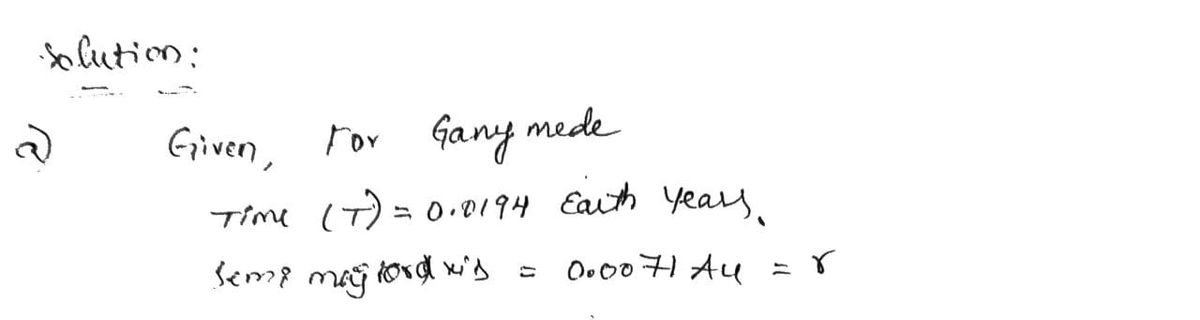 Solution:
a) Given, For Ganymede
Time (T) = 0.0194 Earth years.
Semi major axis = 0.0071 Au = r